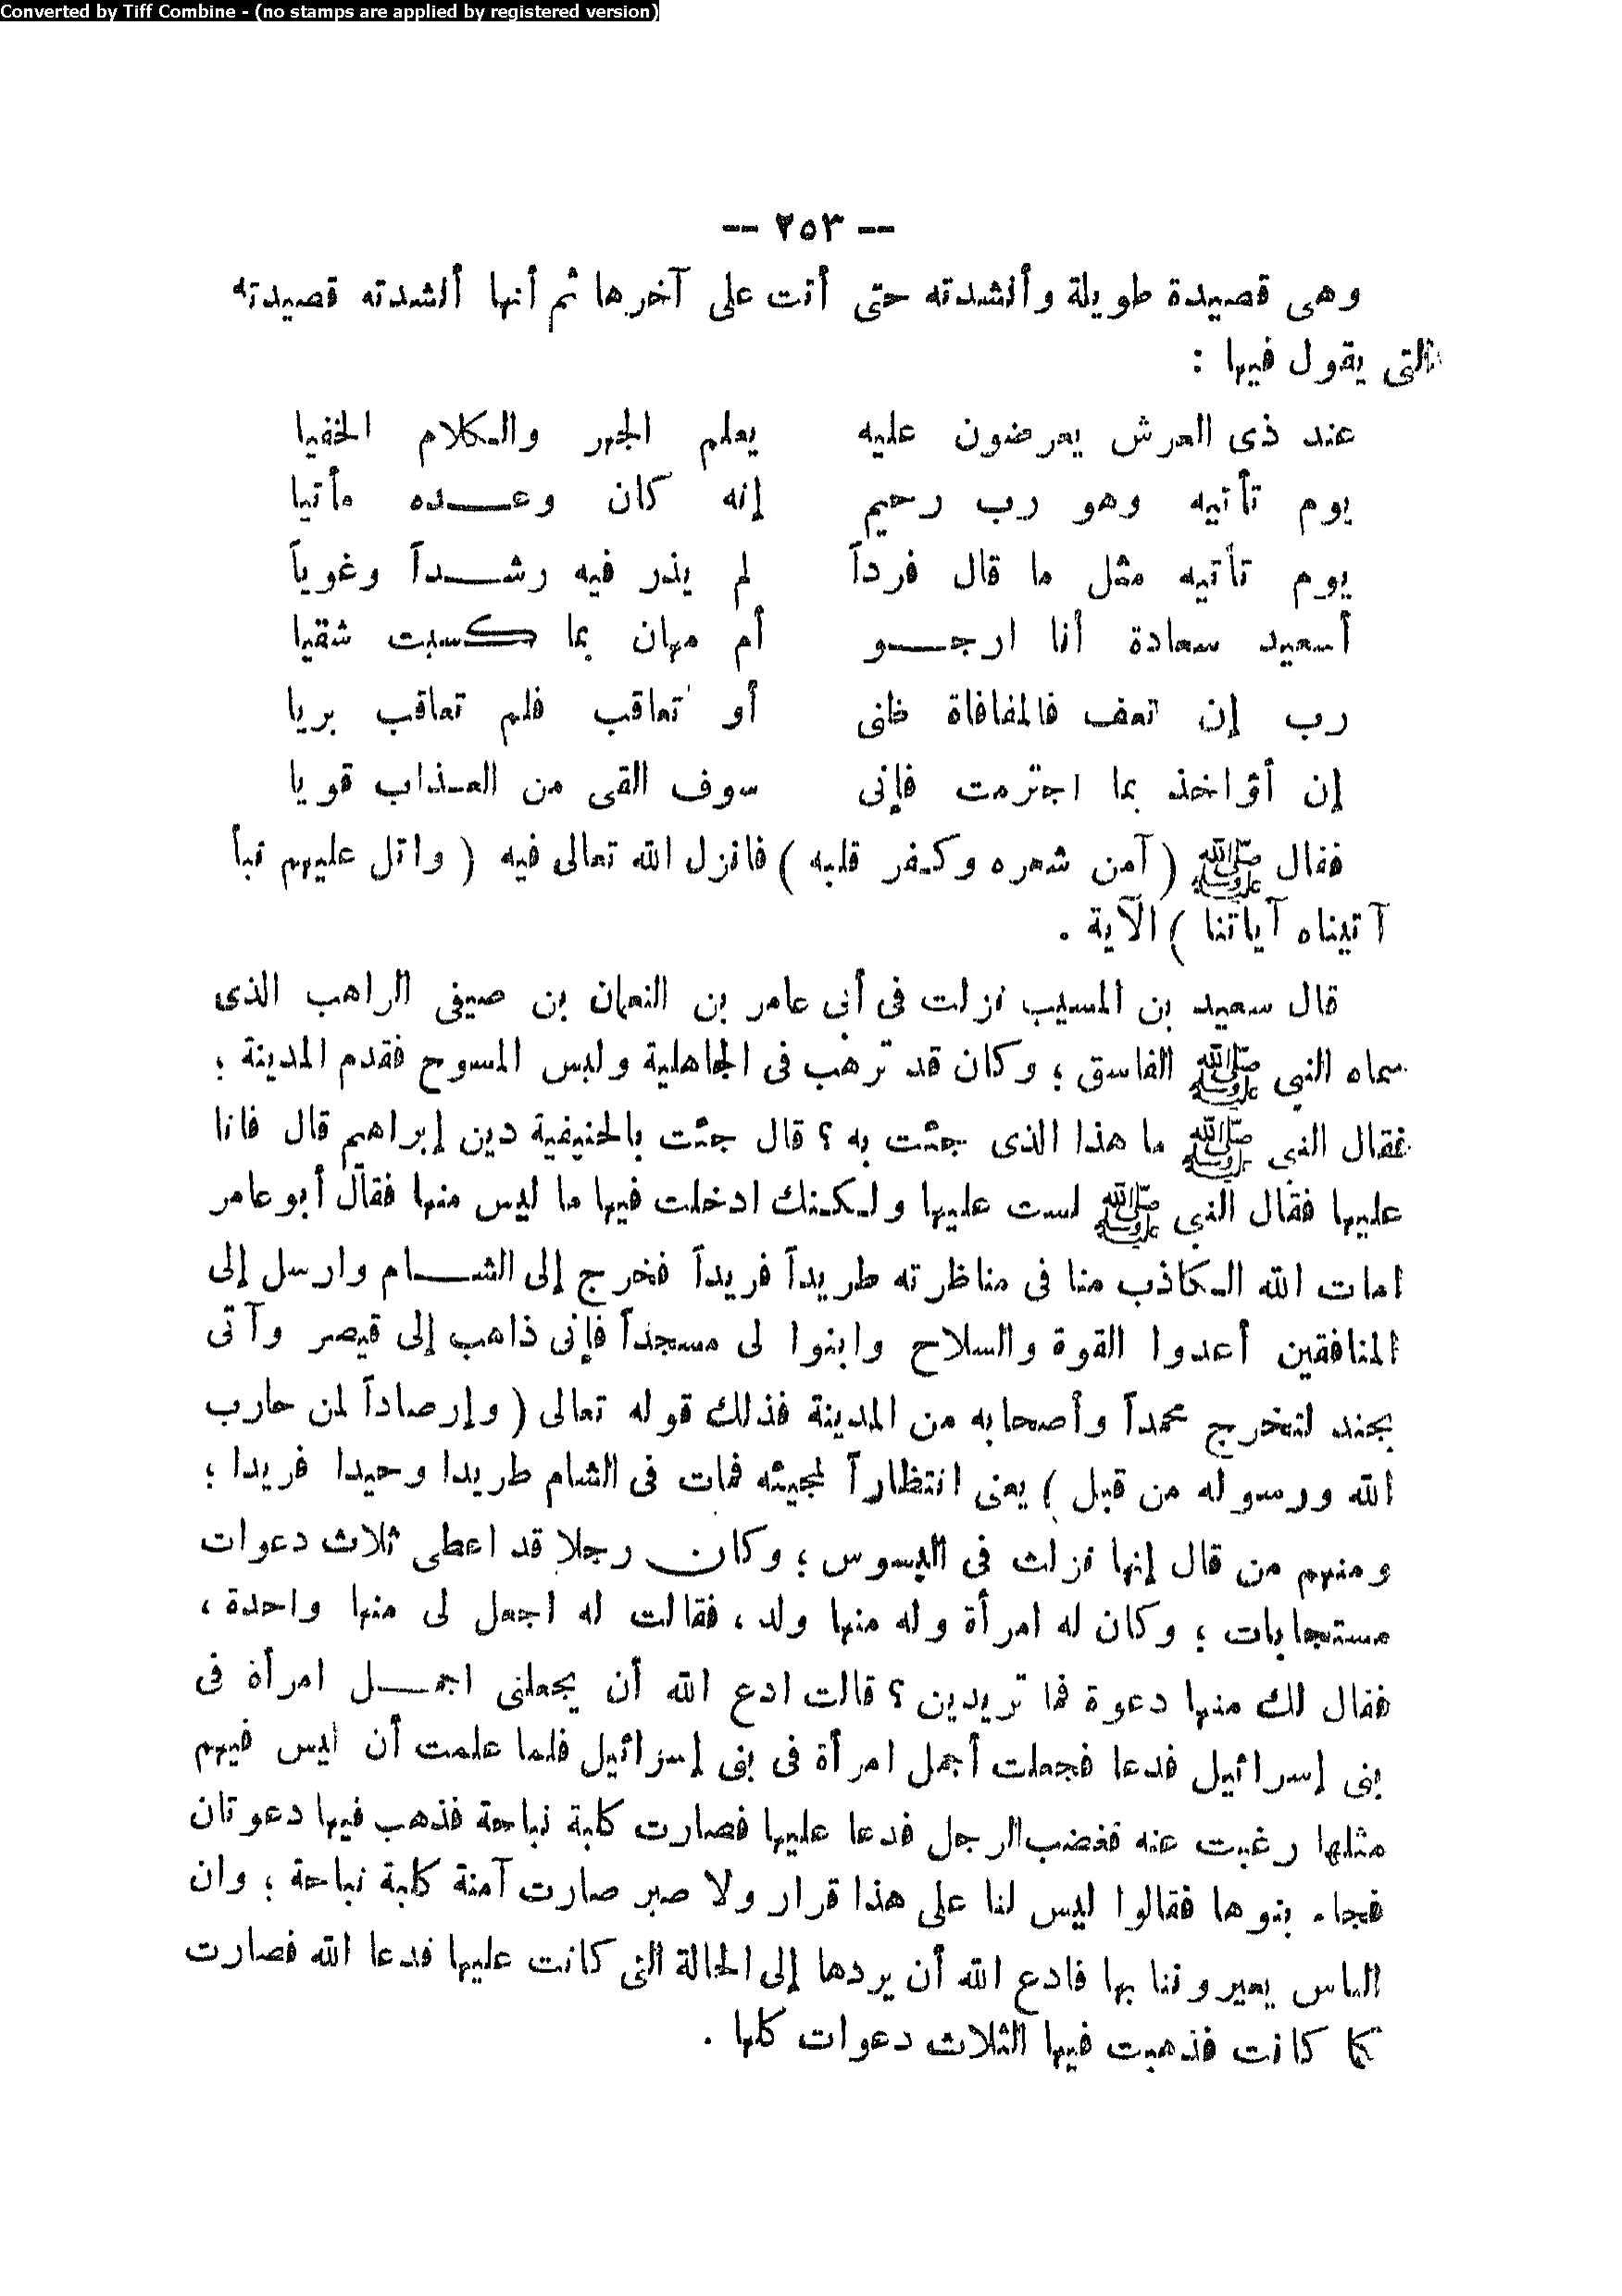 Converted by Tiff Combine - (no stamps are applied by registered version)
-- ٢٥٣ --
وهى قصيدة طويلة وأنشدته حتى أتت على آخرها ثم أنها أنشدته قصيدته
التى يقول فيها :
عند ذى العرش يعرضون عليه يعلم الجهر والكلام الخفيا
يوم تأتيه وهو رب رحيم إنه كان وعده مأتيا
يوم تأتيه مثل ما قال فرداً لم يذر فيه رشداً وغوياً
أسعيد سعادة أنا ارجو أم مهان بما كسبت شقيا
رب إن تعف فالمفافاة ظنى أو تعاقب فلم تعاقب بريا
إن أؤاخذ بما اجترمت فإنى سوف القى من العذاب قويا
فقال ﷺ ( آمن شعره وكفر قلبه ) فانزل الله تعالى فيه ( واتل عليهم نبأ
آتيناه آياتنا ) الآية .
قال سعيد بن المسيب نزلت فى أبى عامر بن النعمان بن صيفى الراهب الذى
سماه النبى ﷺ الفاسق ؛ وكان قد ترهب فى الجاهلية ولبس المسوح فقدم المدينة ؛
فقال النبى ﷺ ما هذا الذى جئت به ؟ قال جئت بالحنيفية دين إبراهيم قال فانا
عليها فقال النبى ﷺ لست عليها ولكنك ادخلت فيها ما ليس منها فقال أبو عامر
امات الله الكاذب منا فى مناظرته طريداً فريداً فخرج إلى الشام وارسل إلى
المنافقين أعدوا القوة والسلاح وابنوا لى مسجداً فإنى ذاهب إلى قيصر وآتى
بجند لنخرج محمداً وأصحابه من المدينة فذلك قوله تعالى ( وإرصاداً لمن حارب
الله ورسوله من قبل ) يعنى انتظاراً لمجيئه فمات فى الشام طريدا وحيدا فريدا ؛
ومنهم من قال إنها نزلت فى البسوس ؛ وكان رجلا قد اعطى ثلاث دعوات
مستجابات ؛ وكان له امرأة وله منها ولد ، فقالت له اجعل لى منها واحدة ،
فقال لك منها دعوة فما تريدين ؟ قالت ادع الله أن يجعلنى اجمل امرأة فى
بنى إسرائيل فدعا فجعلت أجمل امرأة فى بنى إسرائيل فلما علمت أن ليس فيهم
مثلها رغبت عنه فغضب الرجل فدعا عليها فصارت كلبة نباحة فذهب فيها دعوتان
فجاء بنوها فقالوا ليس لنا على هذا قرار ولا صبر صارت آمنة كلبة نباحة ؛ وان
الناس يعيروننا بها فادع الله أن يردها إلى الحالة التى كانت عليها فدعا الله فصارت
كما كانت فذهبت فيها الثلاث دعوات كلها .